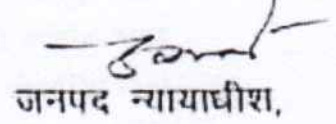 जनपद न्यायाधीश,